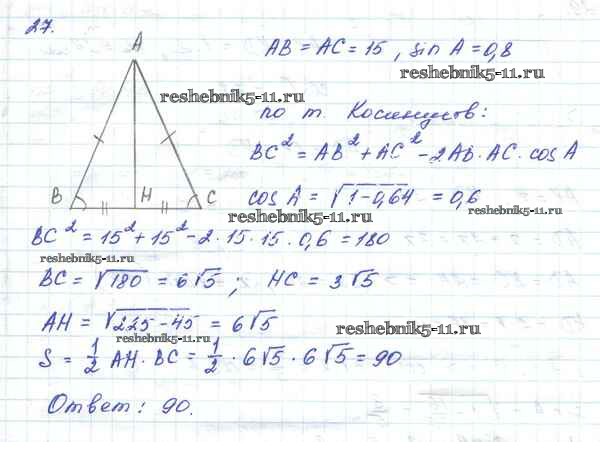 27.
A
B
H
C
AB = AC = 15, sin A = 0,8
reshebnik5-11.ru
reshebnik5-11.ru
по т. Косинусов:
BC² = AB² + AC² - 2AB · AC · cos A
cos A = √(1-0,64) = 0,6
reshebnik5-11.ru
reshebnik5-11.ru
BC² = 15² + 15² - 2 · 15 · 15 · 0,6 = 180
reshebnik5-11.ru
BC = √180 = 6√5 ; HC = 3√5
AH = √(225-45) = 6√5
reshebnik5-11.ru
reshebnik5-11.ru
S = 1/2 AH · BC = 1/2 · 6√5 · 6√5 = 90
Ответ: 90.